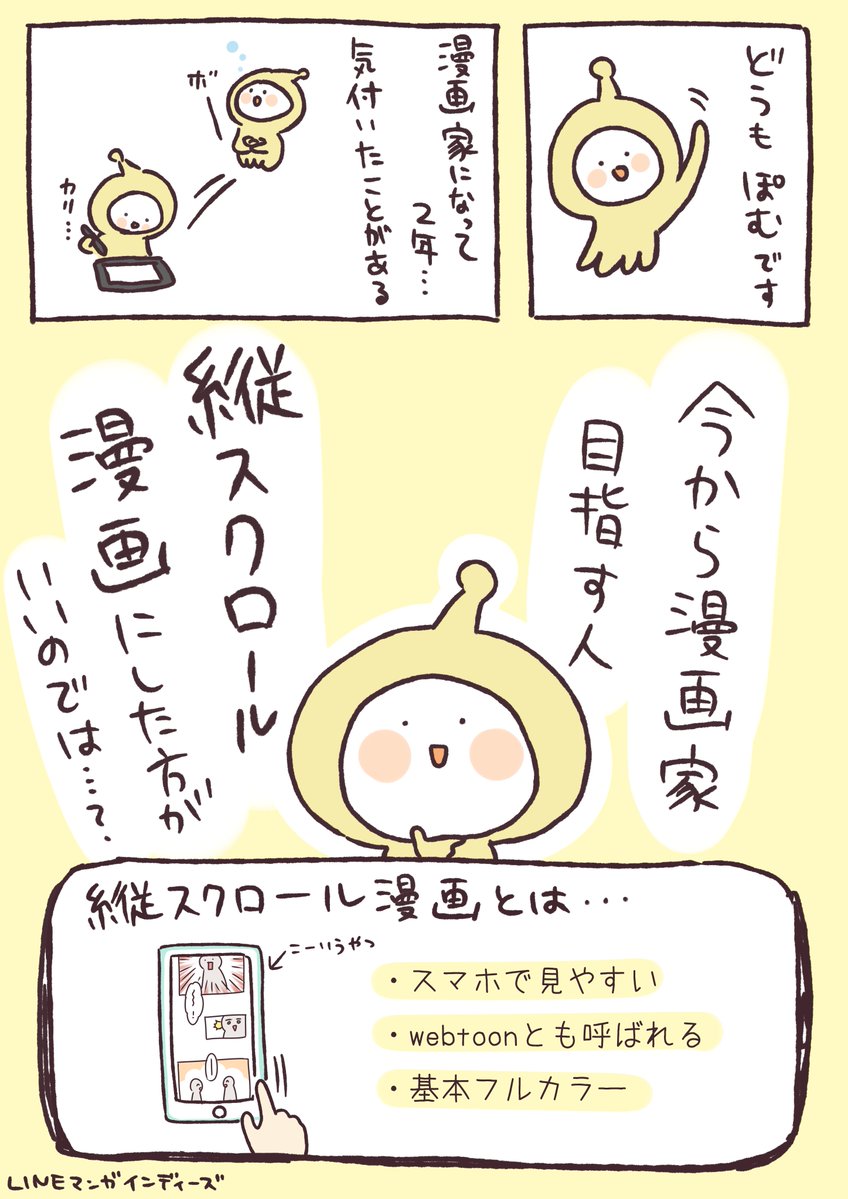 どうも ぽむです
漫画家になって
2年…
気付いたことがある
ボ
カリ…
今から漫画家
目指す人
縦スクロール
漫画にした方が
いいのでは…?
縦スクロール漫画とは…
こーいうやつ
・スマホで見やすい
・webtoonとも呼ばれる
・基本フルカラー
LINEマンガインディーズ